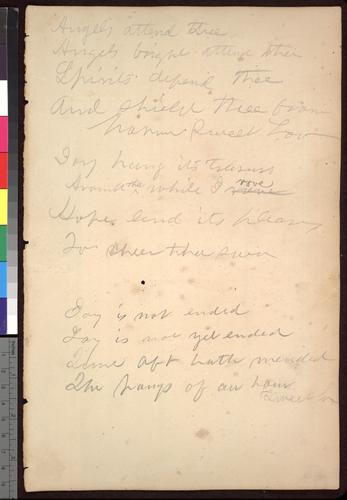 Angels attend thee
Angels bright attend thee
Spirits defend thee
And shield thee from
harm Sweet Love
Joy hang its
Around thee while I rove
Hope lend its
To cheer thee
Joy is not ended
Joy is not yet ended
Time oft hath mended
The pangs of an hour
Sweet